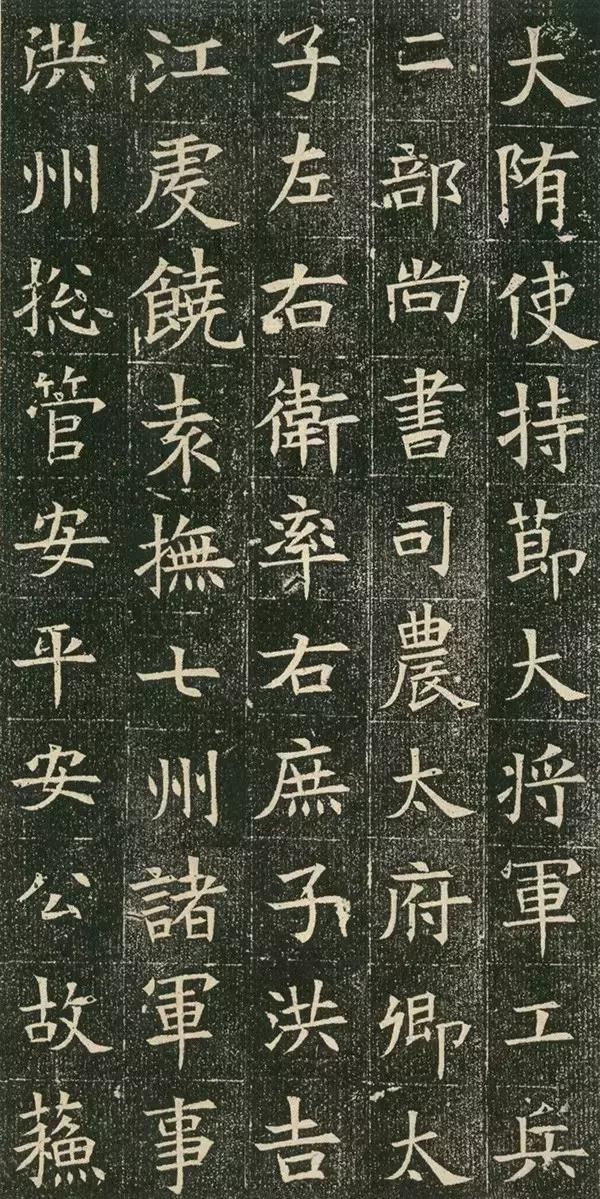 大隋使持節大將軍工兵
二部尚書司農太府卿太
子左右衛率右庶子洪吉
江虔饒袁撫七州諸軍事
洪州㧾管安平安公故蘓